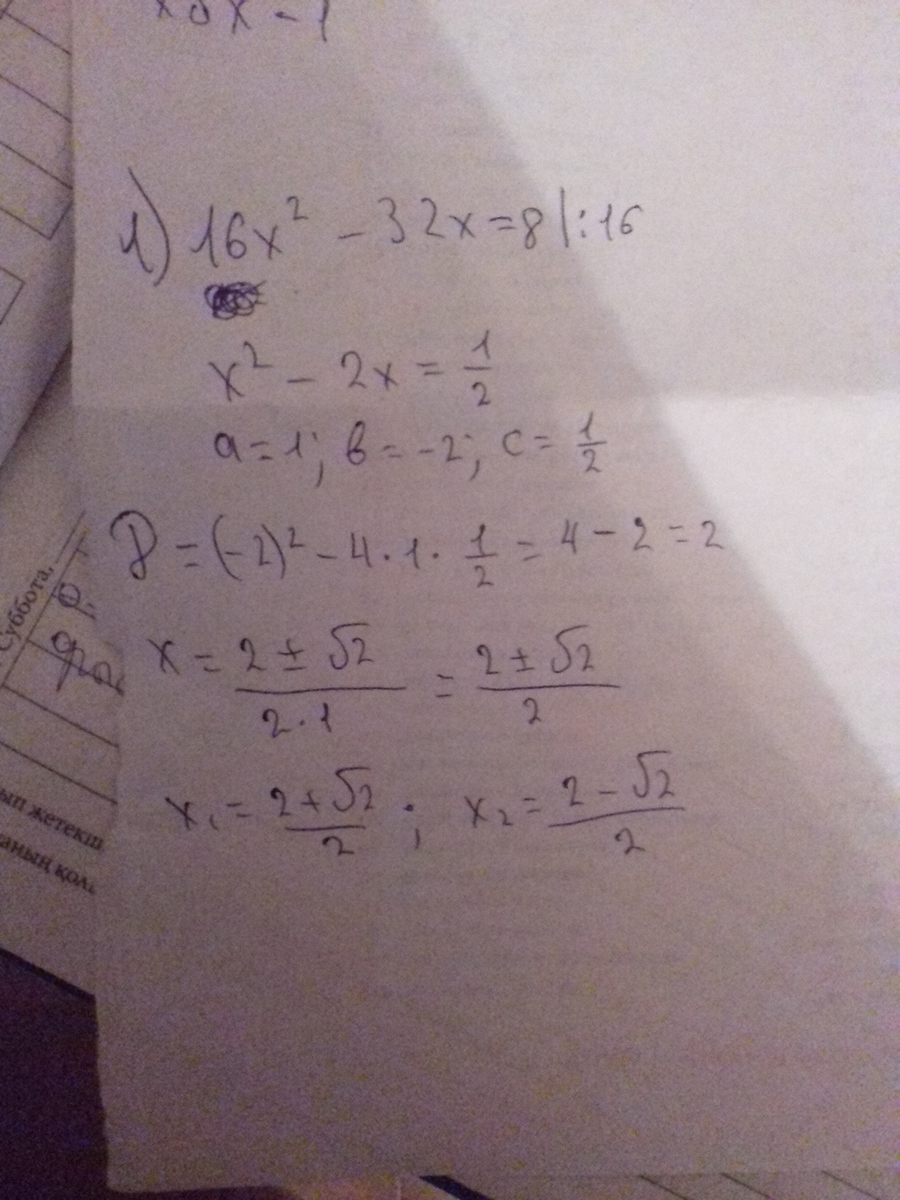 x - 1
1) 16x² - 32x = 8 |:16
x² - 2x = 1/2
a = 1; b = -2; c = 1/2
D = (-2)² - 4 · 1 · 1/2 = 4 - 2 = 2
x = (2 ± √2)/(2 · 1) = (2 ± √2)/2
x₁ = (2 + √2)/2 ; x₂ = (2 - √2)/2
Суббота,
жетекші